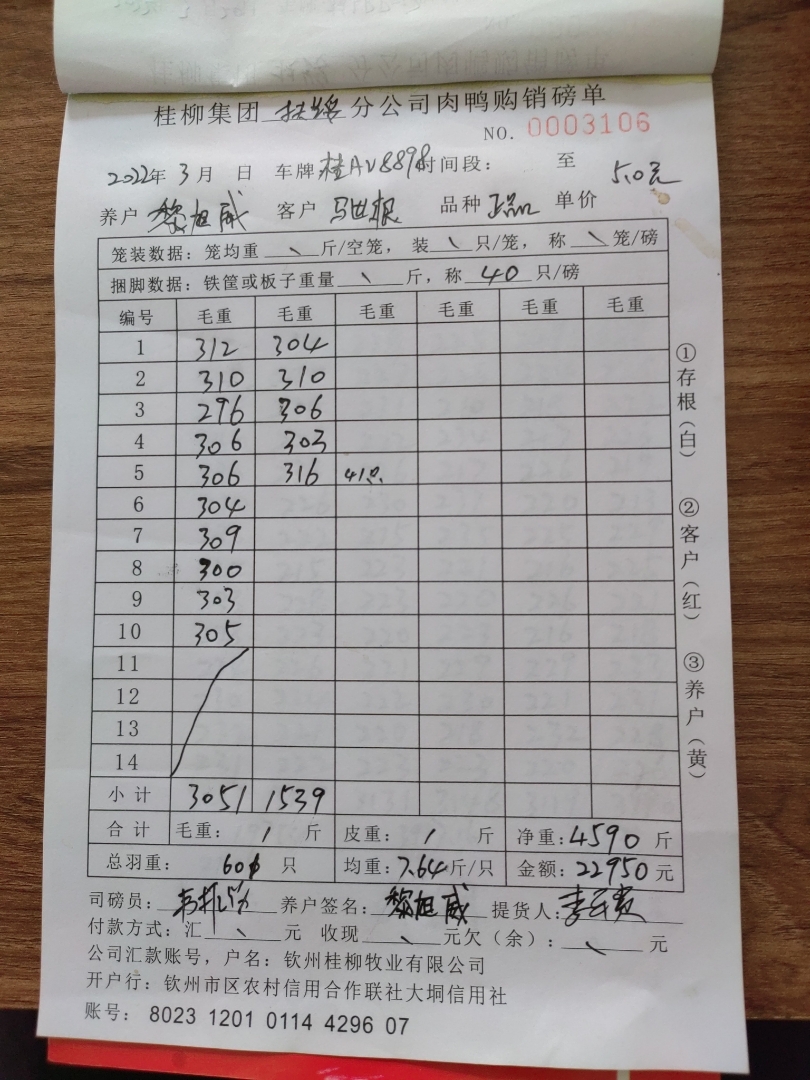 桂柳集团 扶绥 分公司肉鸭购销磅单
NO. 0003106
2022年 3月 日 车牌 桂AV8898 时间段: 至
养户 黎旭威 客户 马世根 品种 正品 单价 5.0元
笼装数据: 笼均重 \ 斤/空笼, 装 \ 只/笼, 称 \ 笼/磅
捆脚数据: 铁筐或板子重量 \ 斤, 称 40 只/磅
编号 毛重 毛重 毛重 毛重 毛重 毛重
1 312 304
2 310 310
3 296 306
4 306 303
5 306 316 41只
6 304
7 309
8 300
9 303
10 305
11
12
13
14
小计 3051 1539
合计 毛重: / 斤 皮重: / 斤 净重: 4590 斤
总羽重: 601 只 均重: 7.64 斤/只 金额: 22950 元
司磅员: 养户签名: 黎旭威 提货人:
付款方式: 汇 \ 元 收现 \ 元欠(余): \ 元
公司汇款账号, 户名: 钦州桂柳牧业有限公司
开户行: 钦州市区农村信用合作联社大垌信用社
账号: 8023 1201 0114 4296 07
①存根(白)
②客户(红)
③养户(黄)